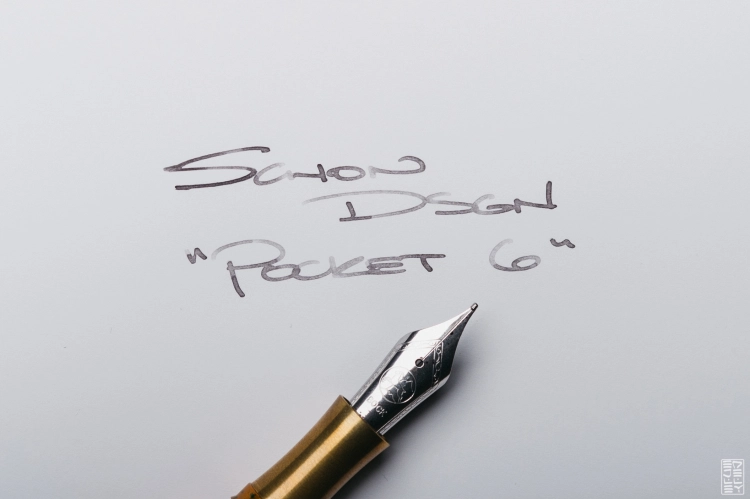 SCHON
DSGN
"POCKET 6"